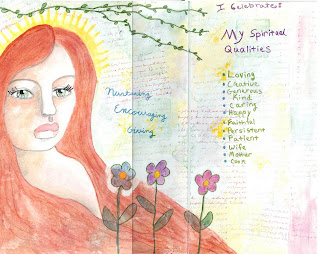 I Celebrate!
My Spiritual
Qualities
Nurturing
Encouraging
Giving
Loving
Creative
Generous
Kind
Caring
Happy
Faithful
Persistent
Patient
Wife
Mother